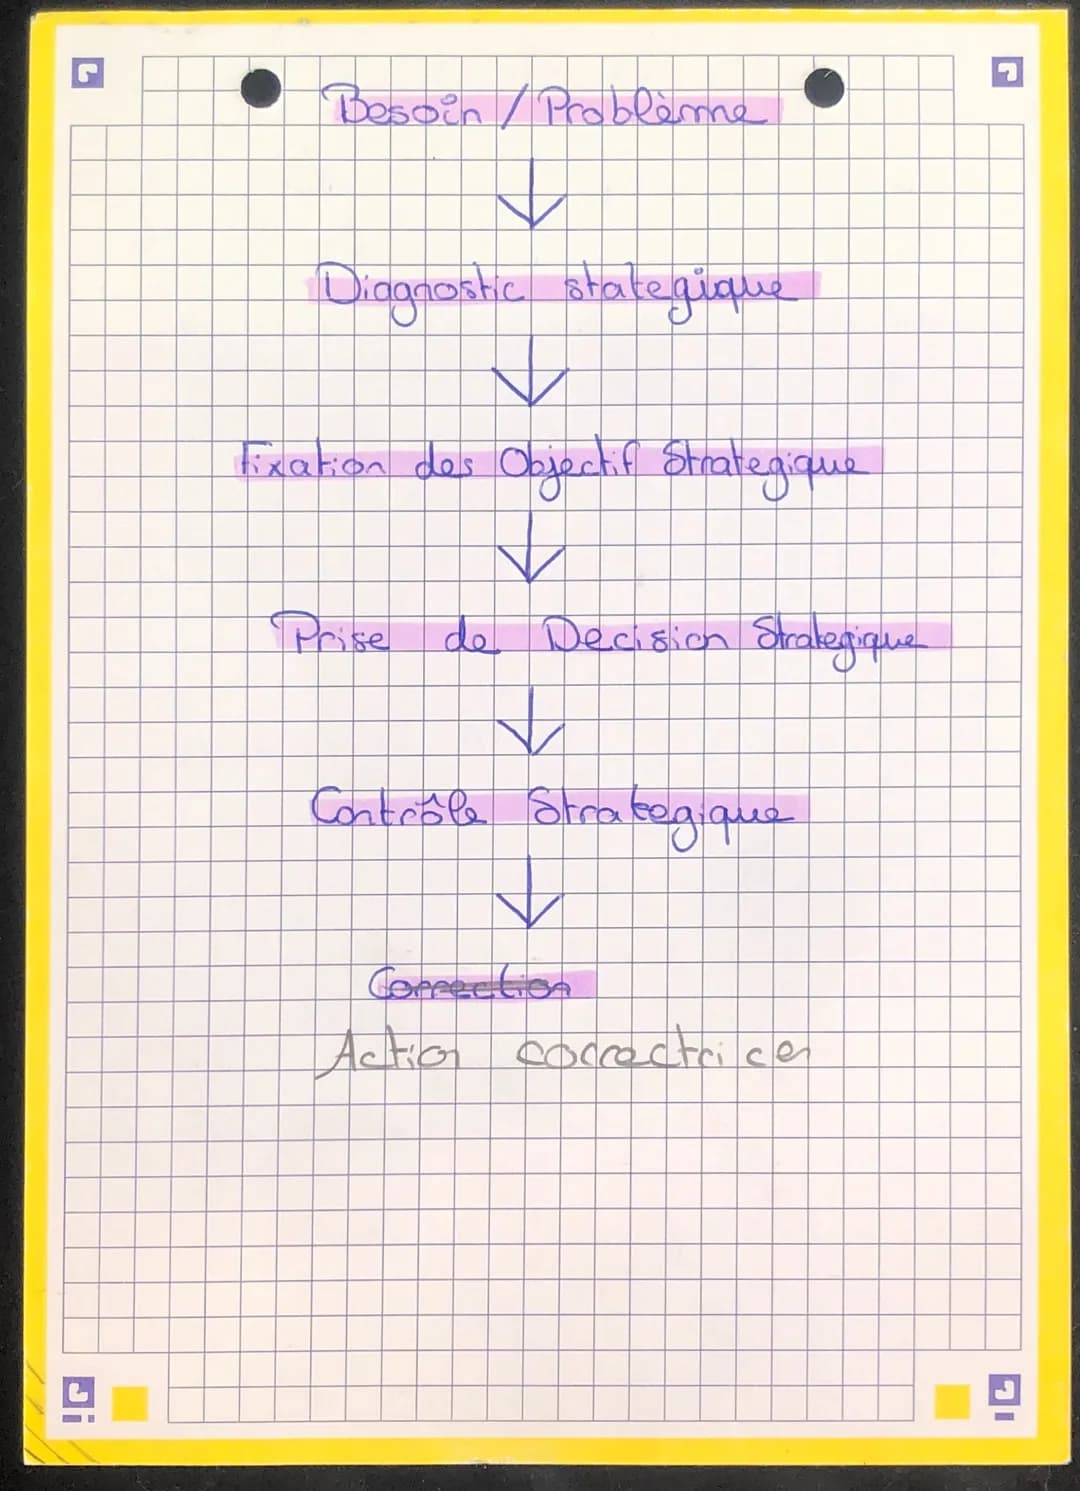 Besoin / Problème
↓
Diagnostic stategique
↓
Fixation des Objectif Strategique
↓
Prise de Decision Strategique
↓
Contrôle Strategique
↓
Correction
Action correctrices